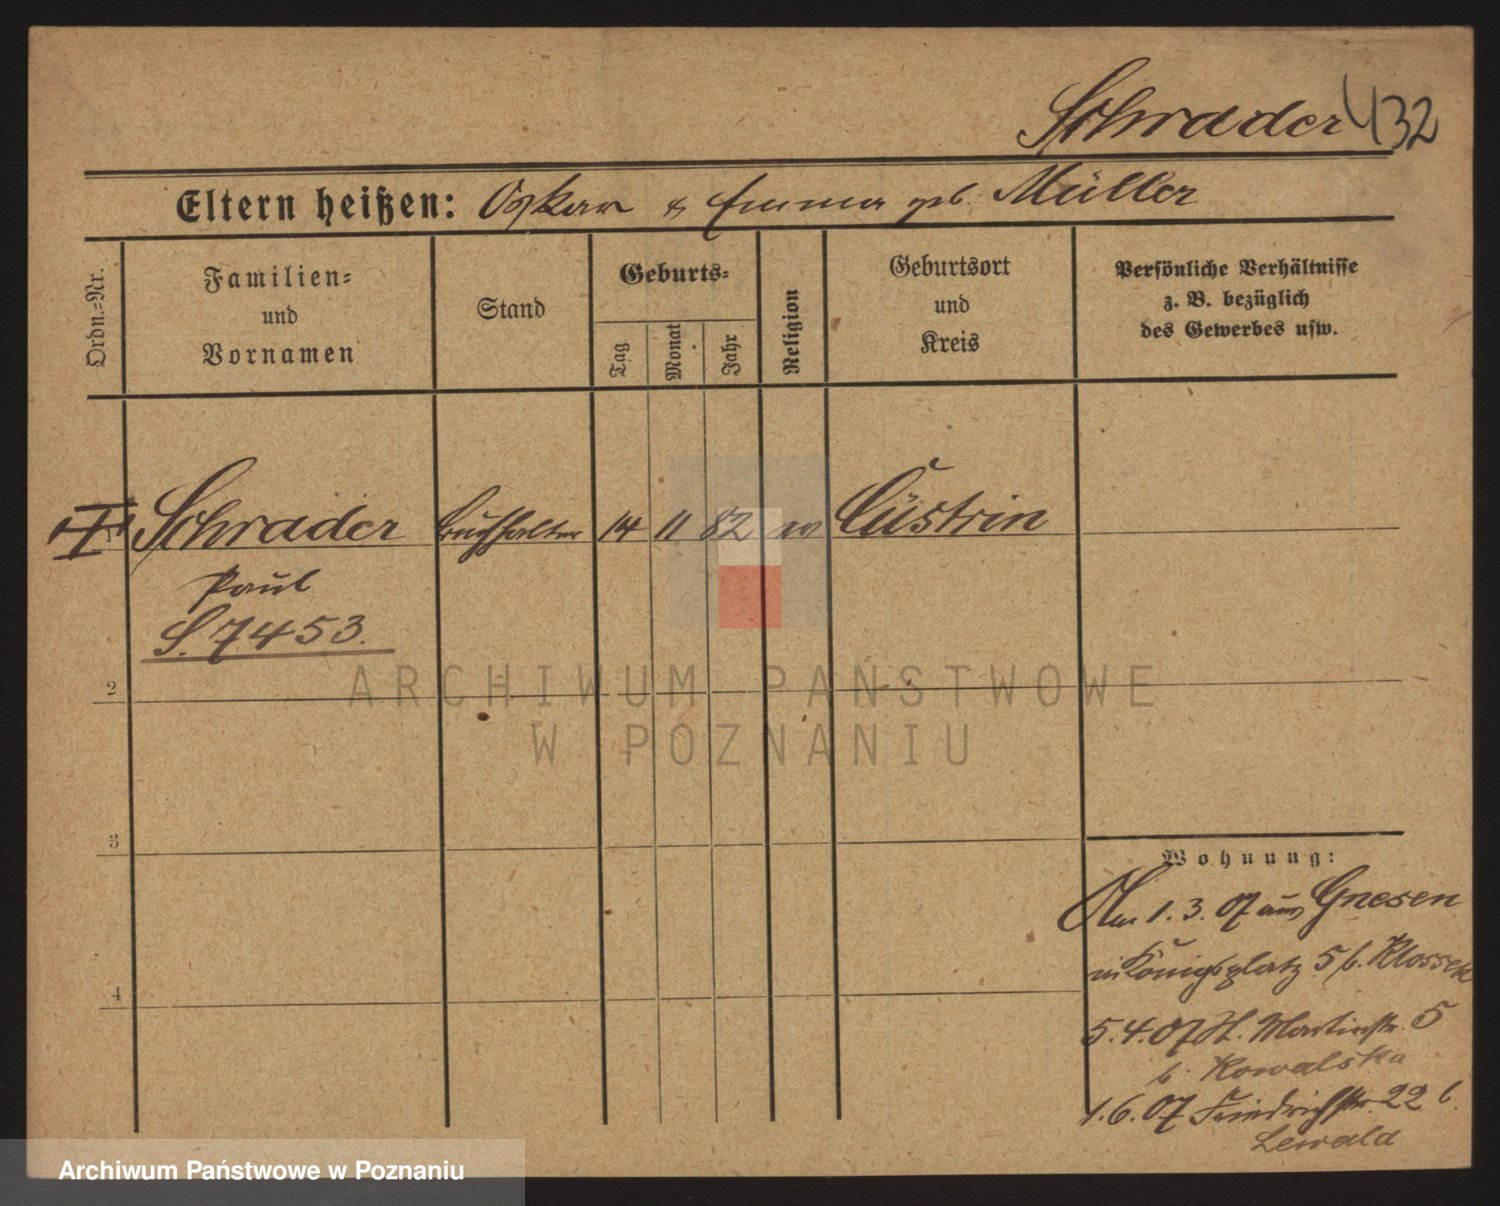 Schrader 432
Eltern heißen: Oskar & Emma geb. Müller
Ordn.=Nr.
Familien=
und
Vornamen
Stand
Geburts=
Tag
Monat
Jahr
Religion
Geburtsort
und
Kreis
Persönliche Verhältnisse
z. B. bezüglich
des Gewerbes usw.
Schrader Buchhalter 14 11 82 ev Cüstrin
Paul
S. 7453.
2
3
4
Wohnung:
Am 1. 3. 07 aus Gnesen
in Königsplatz 5 b. Klossek
5. 4. 07 St. Martinstr. 5
b. Kowalska
1. 6. 07 Friedrichstr. 22 b.
Lewald
ARCHIWUM PAŃSTWOWE
W POZNANIU
Archiwum Państwowe w Poznaniu